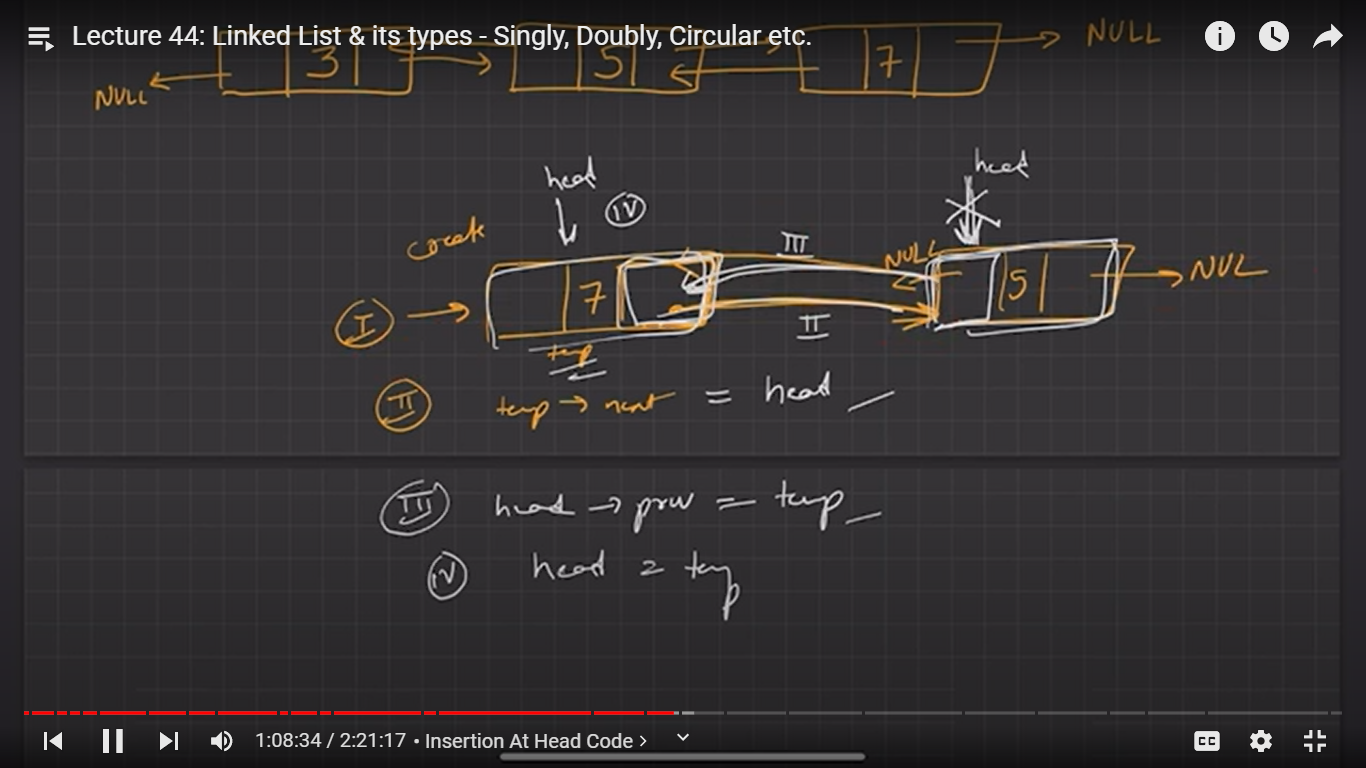 Lecture 44: Linked List & its types - Singly, Doubly, Circular etc.
NULL 3 5 7 NULL
head head
create IV III NULL
I 7 5 NUL
II
temp
II temp → next = head
III head → prev = temp
IV head = temp
1:08:34 / 2:21:17 • Insertion At Head Code >
CC